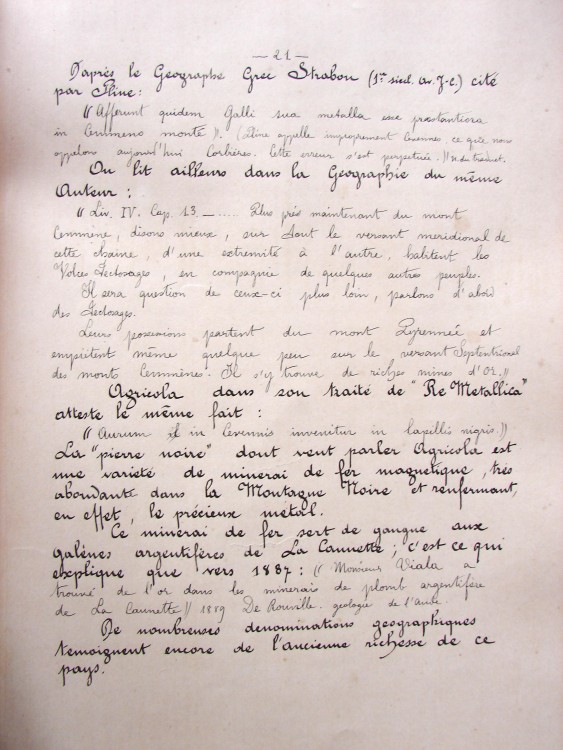 — 21 —
D'après le Géographe Grec Strabon (1er siècl. av. J-C.) cité
par Pline:
"Afferunt quidem Galli sua metalla esse præstantiora
in Cemmeno monte". (Pline appelle improprement Cevennes, ce que nous
appelons aujourd'hui Corbières. Cette erreur s'est perpétuée.)
On lit ailleurs dans la Géographie du même
Auteur :
"Liv. IV. Cap. 13. — ..... Plus près maintenant du mont
Cemmène, disons mieux, sur tout le versant meridional de
cette chaine, d'une extremité à l'autre, habitent les
Volces Tectosages, en compagnie de quelques autres peuples.
Il sera question de ceux-ci plus loin, parlons d'abord
des Tectosages.
Leurs possessions partent du mont Pyrennée et
empiètent même quelque peu sur le versant Septentrional
des monts Cemmènes. Il s'y trouve de riches mines d'Or."
Agricola dans son traité de "Re Metallica"
atteste le même fait :
"Aurum in Cevennis invenitur in lapillis nigris."
La "pierre noire" dont veut parler Agricola est
une varieté de minerai de fer magnetique, très
abondante dans la Montagne Noire et renfermant,
en effet, le précieux metal.
Ce minerai de fer sert de gangue aux
galènes argentifères de La Caunette ; c'est ce qui
explique que vers 1887 : "Monsieur Viala a
trouvé de l'or dans les minerais de plomb argentifère
de La Caunette" 1889 De Rouville. géologie de l'Aude.
De nombreuses denominations geographiques
temoignent encore de l'ancienne richesse de ce
pays.